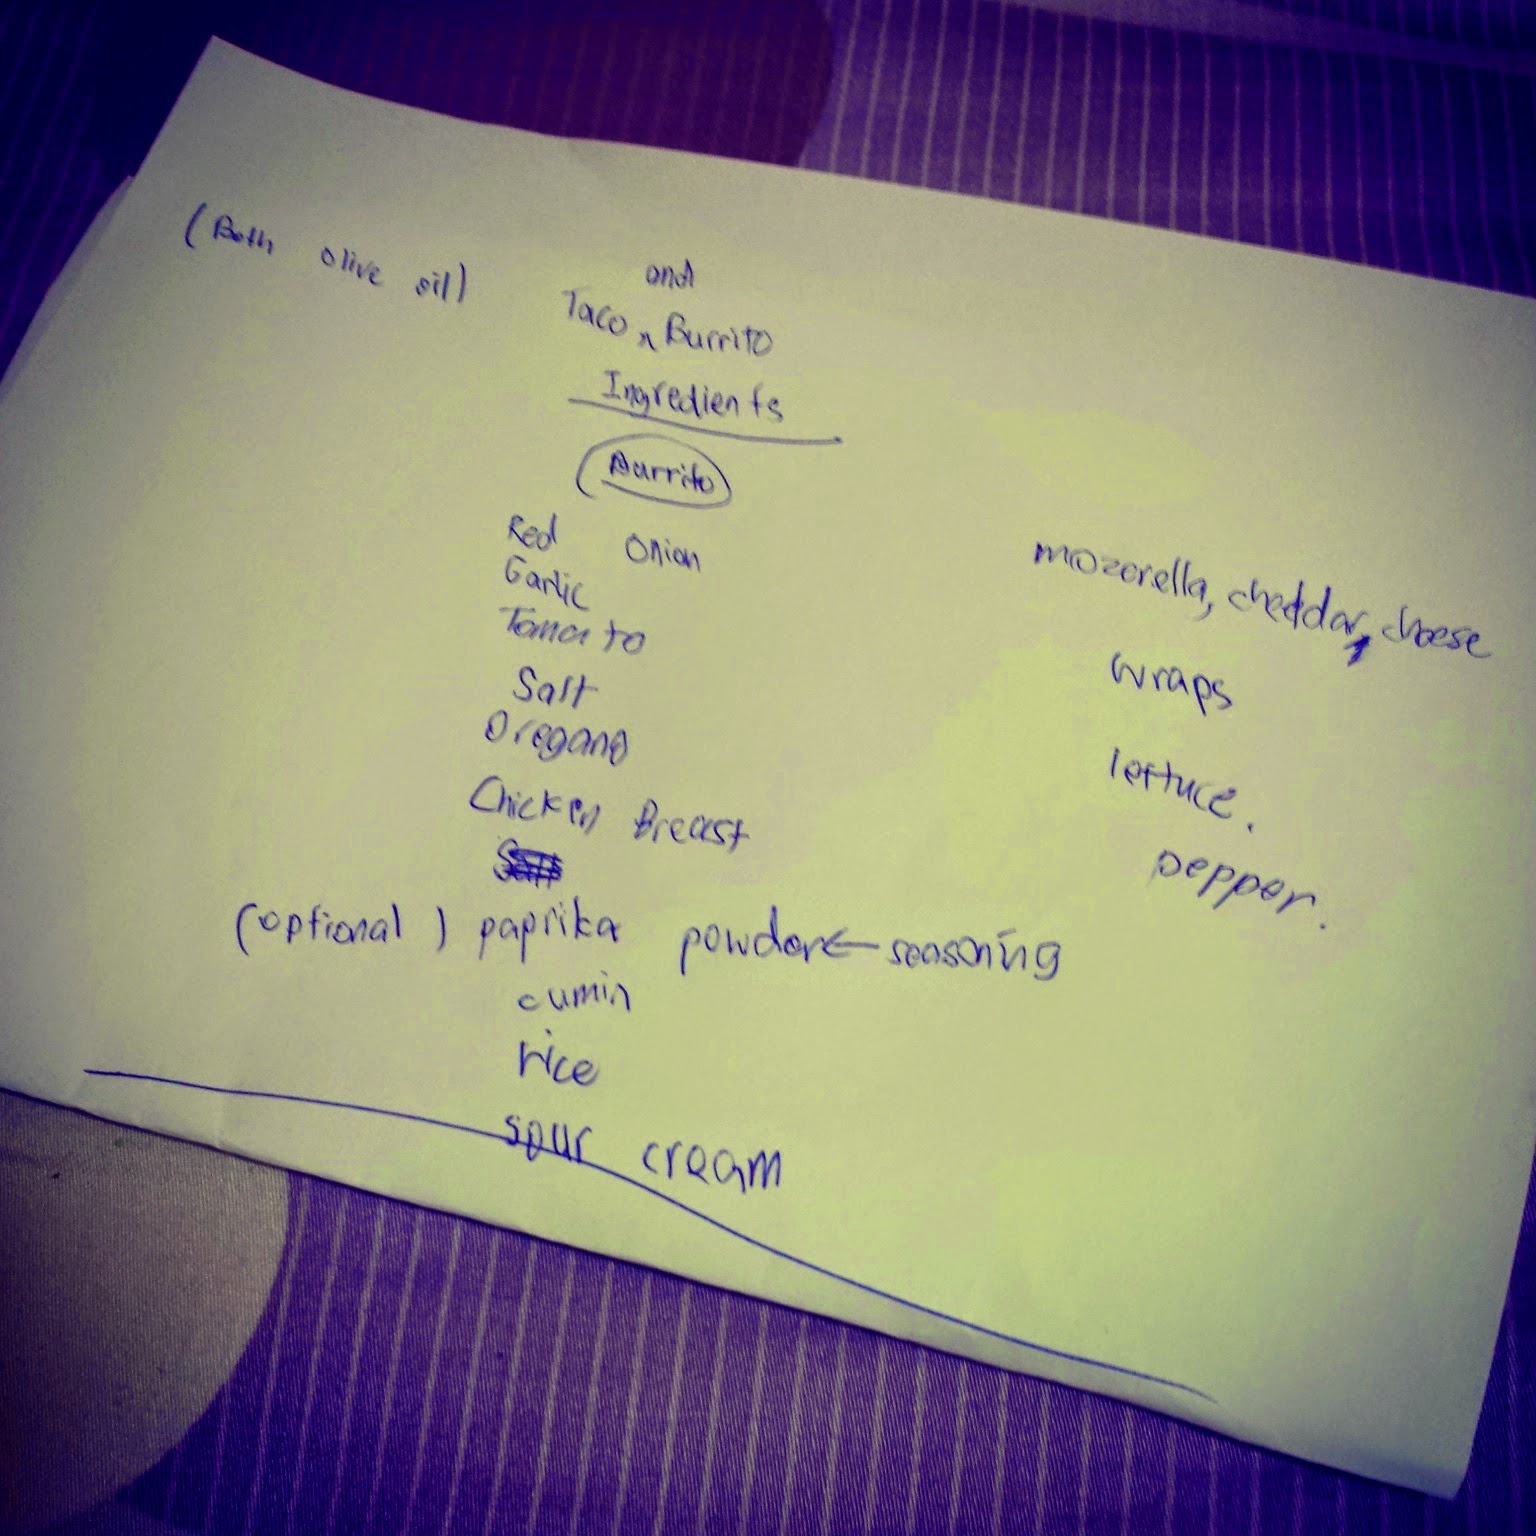 (Both olive oil)
and
Taco ^ Burrito
Ingredients
Burrito
Red Onion
Garlic
Tomato
Salt
Oregano
Chicken Breast
(optional) paprika powder ← seasoning
cumin
rice
sour cream
mozorella, cheddar, cheese
wraps
lettuce.
pepper.